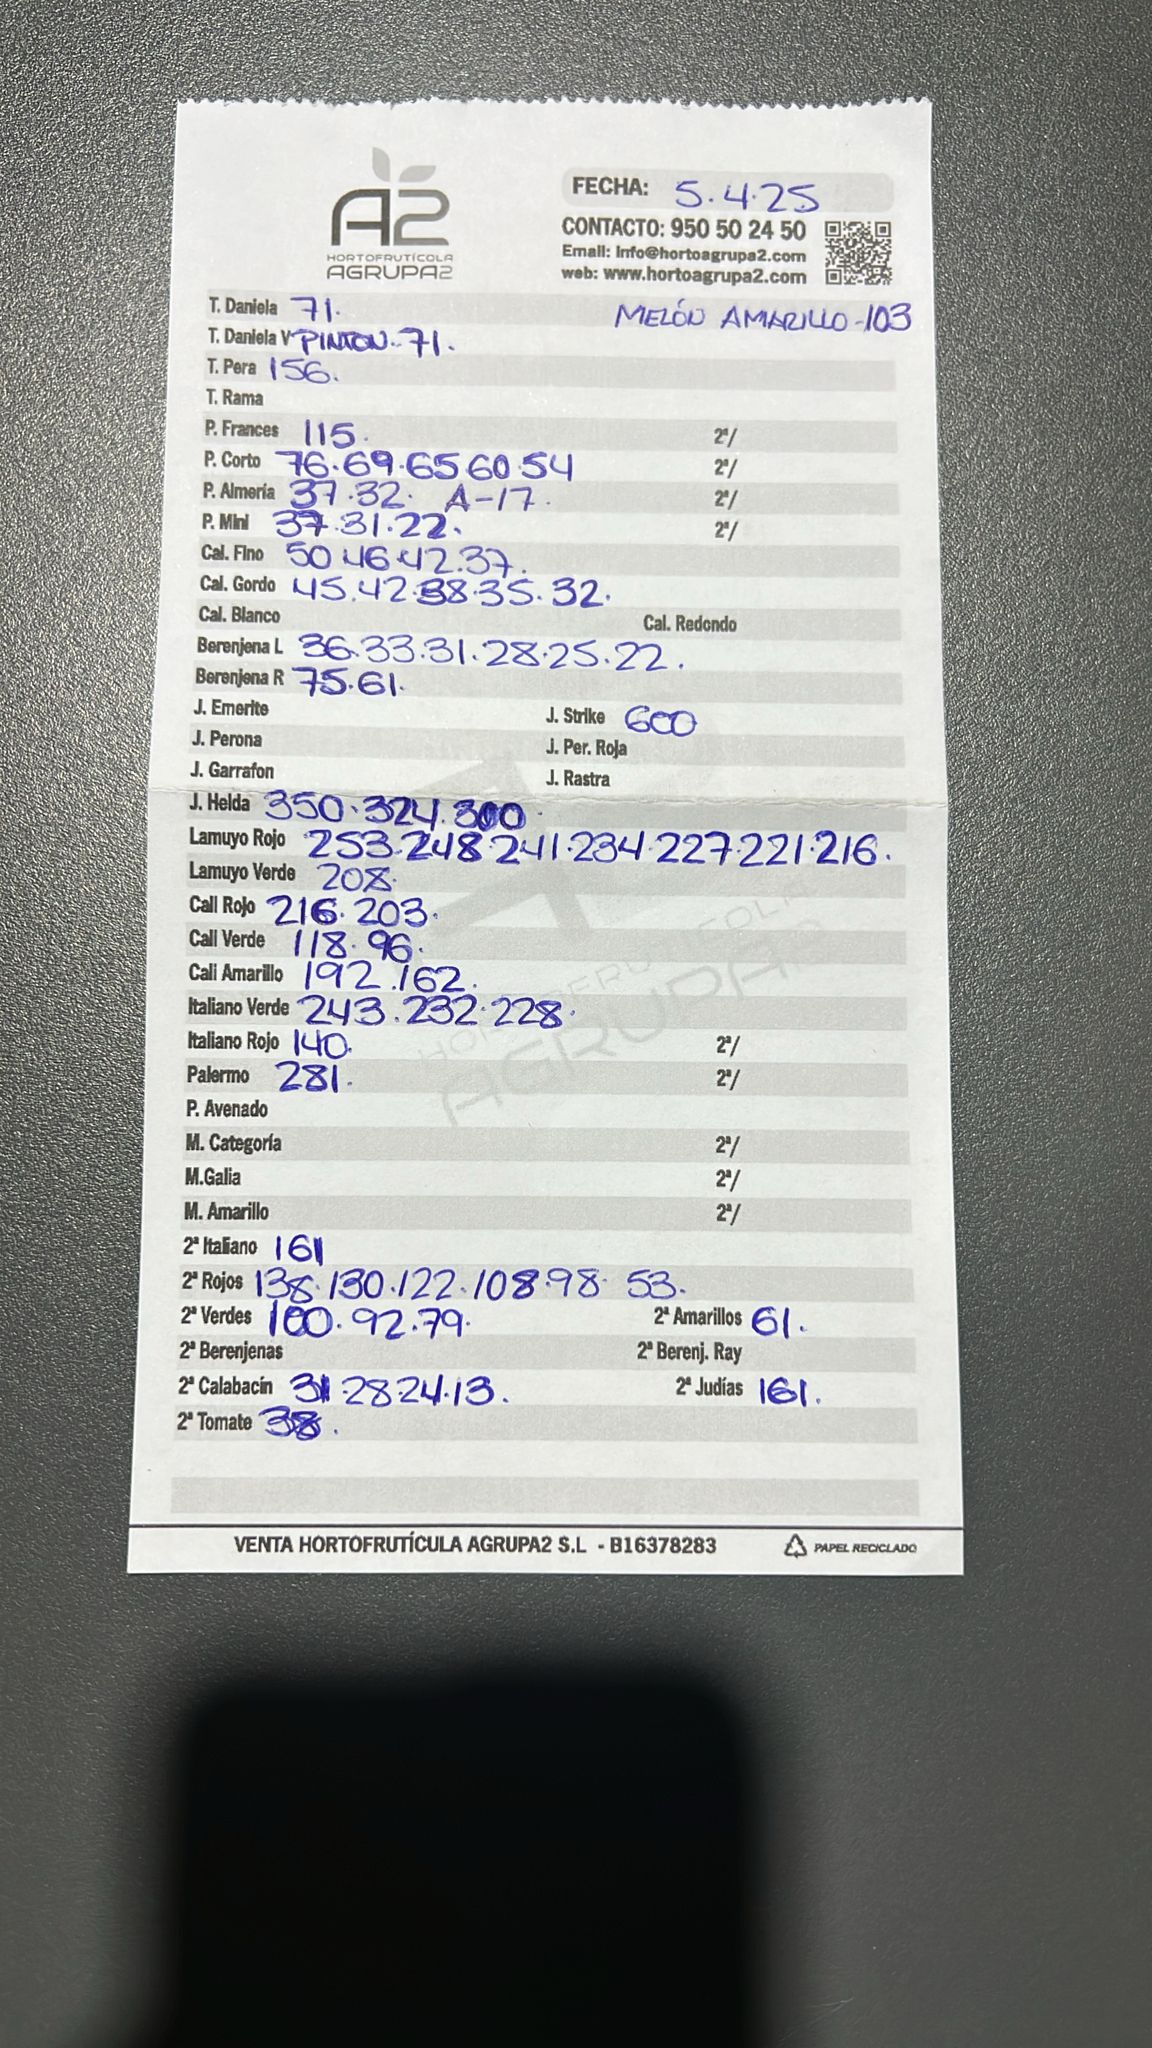 A2
HORTOFRUTÍCOLA
AGRUPA2
FECHA: 5.4.25
CONTACTO: 950 50 24 50
Email: Info@hortoagrupa2.com
web: www.hortoagrupa2.com
T. Daniela 71. MELÓN AMARILLO-103
T. Daniela V PINTON..71.
T. Pera 156.
T. Rama
P. Frances 115. 2ª/
P. Corto 76.69.65 60.54 2ª/
P. Almería 37.32. A-17. 2ª/
P. Mini 37.31.22. 2ª/
Cal. Fino 50.46.42.37.
Cal. Gordo 45.42.38.35.32.
Cal. Blanco Cal. Redondo
Berenjena L 36.33.31.28.25.22.
Berenjena R 75.61.
J. Emerite J. Strike 600
J. Perona J. Per. Roja
J. Garrafon J. Rastra
J. Helda 350.324.300.
Lamuyo Rojo 253.248.241.234.227.221.216.
Lamuyo Verde 208.
Cali Rojo 216.203.
Cali Verde 118.96.
Cali Amarillo 192.162.
Italiano Verde 243.232.228.
Italiano Rojo 140. 2ª/
Palermo 281. 2ª/
P. Avenado
M. Categoría 2ª/
M.Galia 2ª/
M. Amarillo 2ª/
2ª Italiano 161
2ª Rojos 138.130.122.108.98. 53.
2ª Verdes 100.92.79. 2ª Amarillos 61.
2ª Berenjenas 2ª Berenj. Ray
2ª Calabacín 31.28.24.13. 2ª Judías 161.
2ª Tomate 38.
VENTA HORTOFRUTÍCULA AGRUPA2 S.L - B16378283 PAPEL RECICLADO